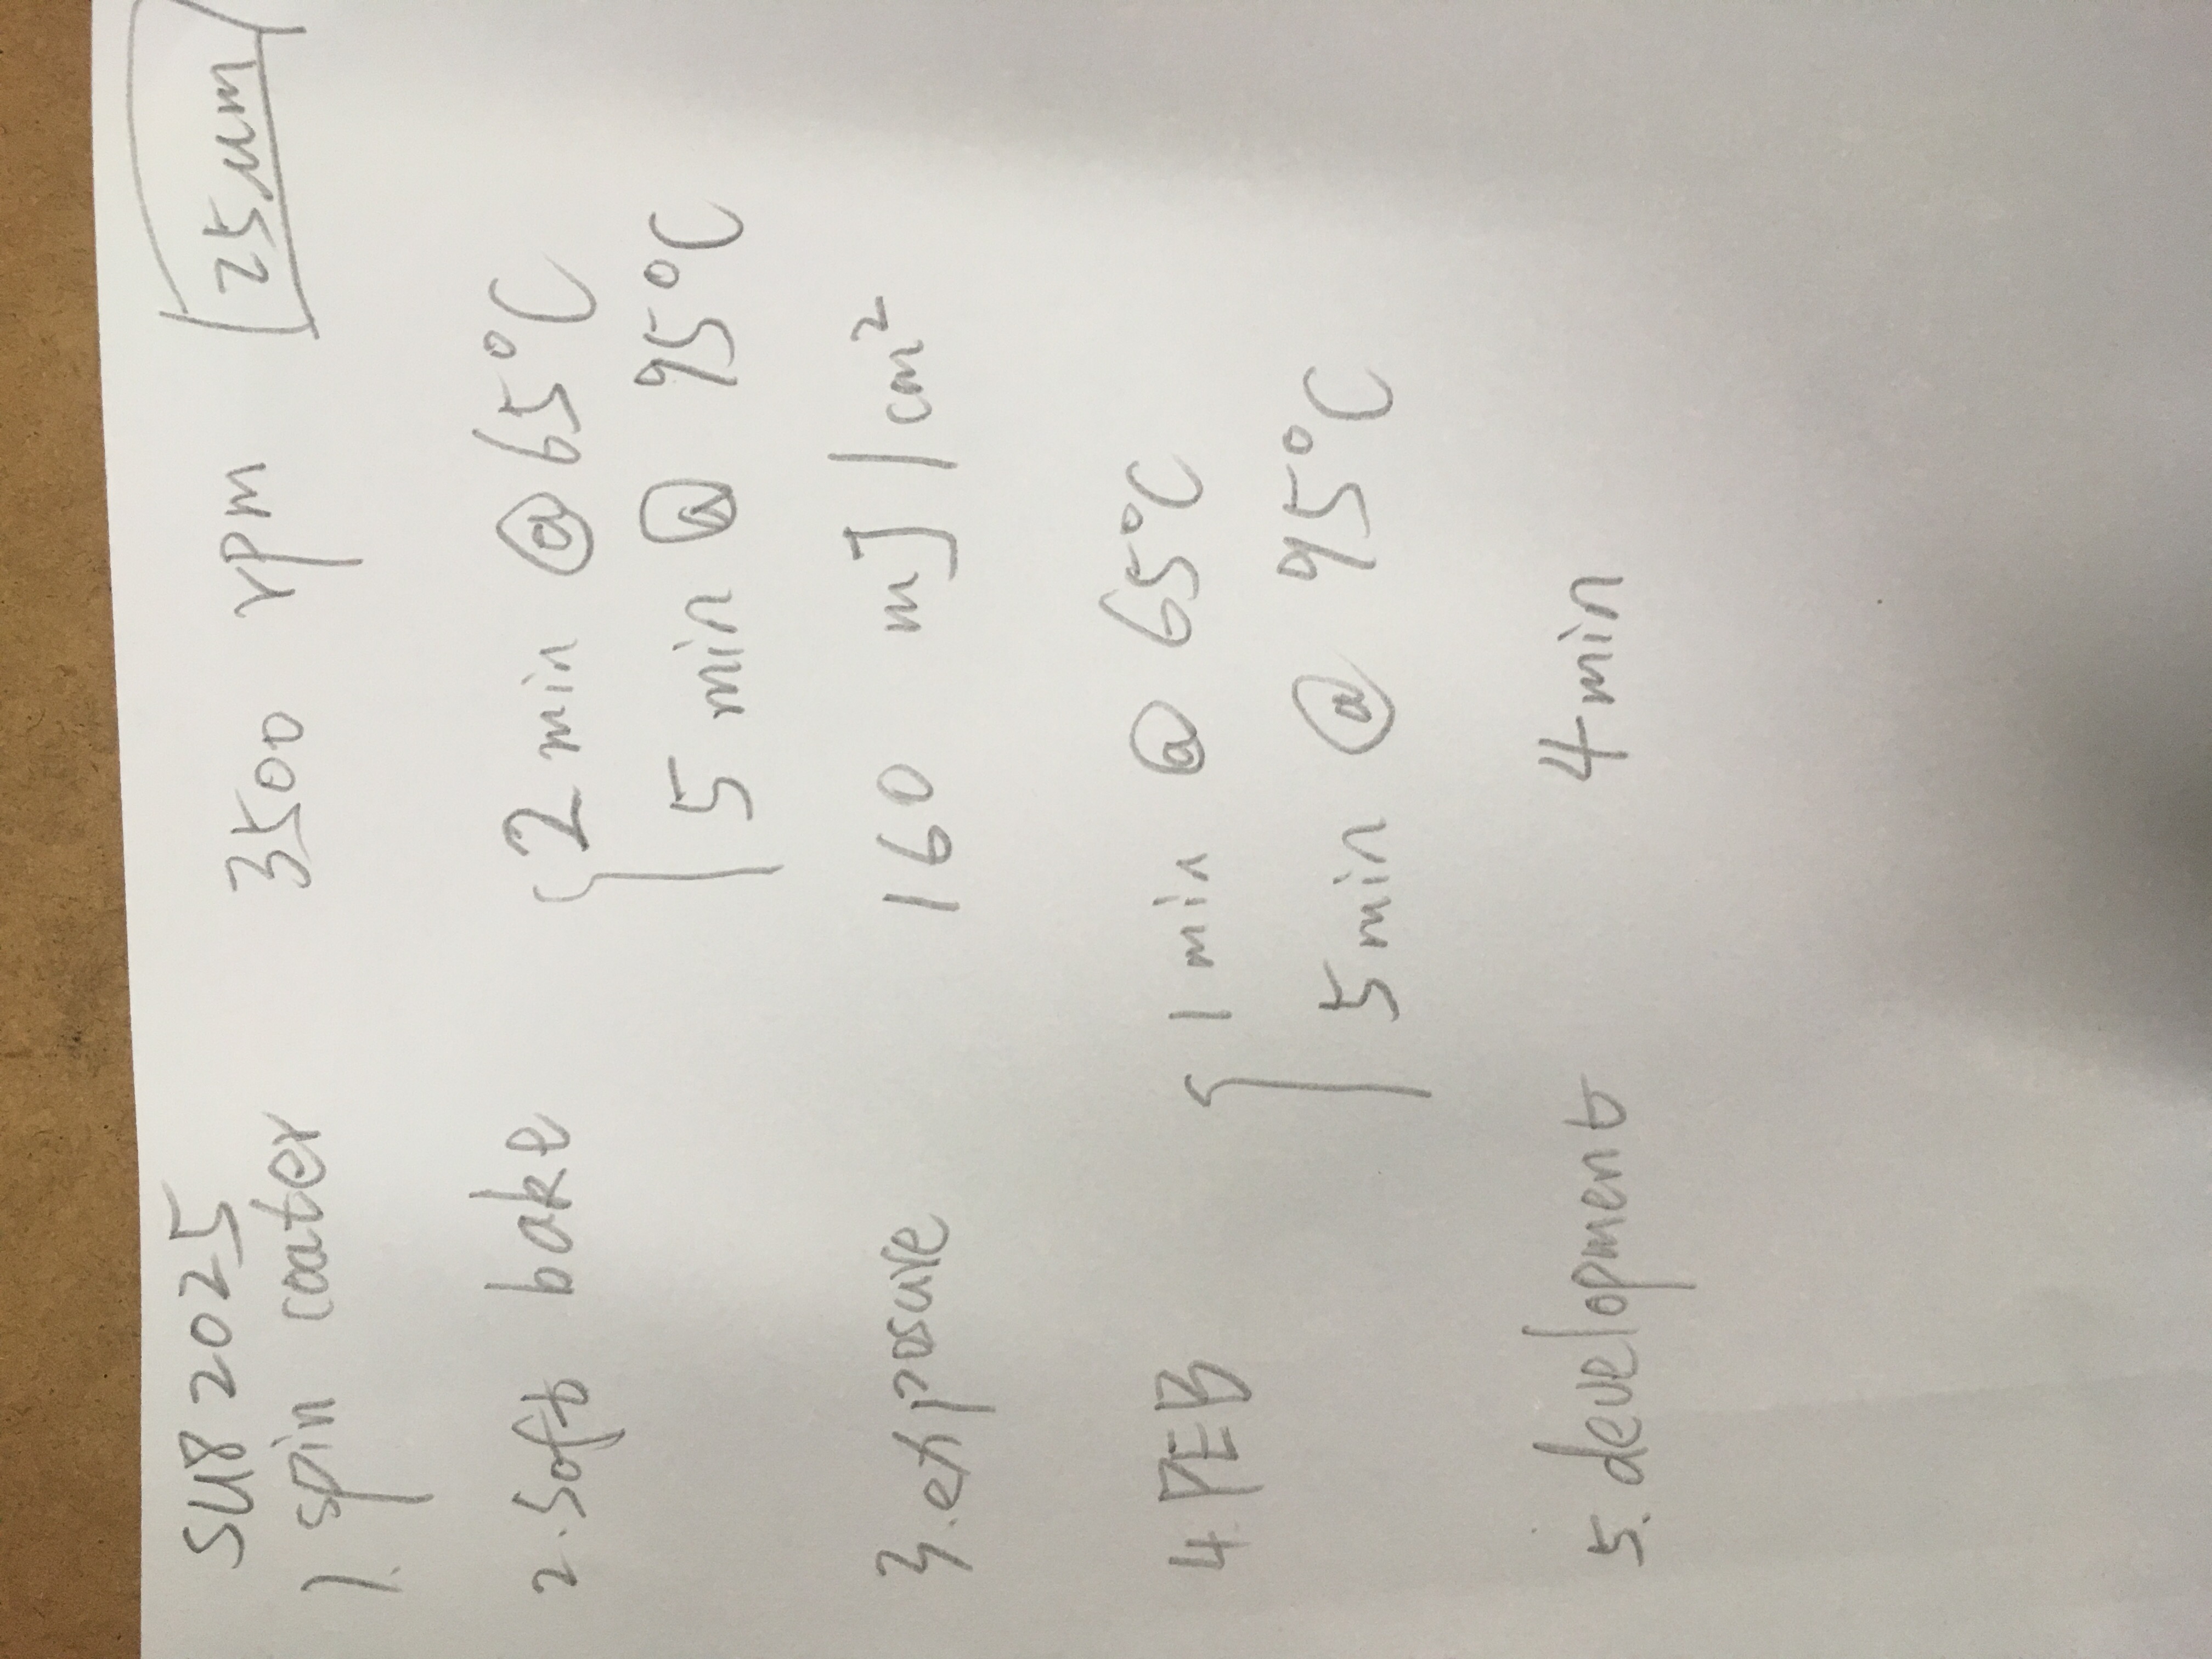 SU8 2025
1. spin coater 3500 rpm 25μm
2. Soft bake { 2 min @ 65°C
5 min @ 95°C
3. exposure 160 mJ/cm²
4. PEB { 1 min @ 65°C
5 min @ 95°C
5. development 4 min